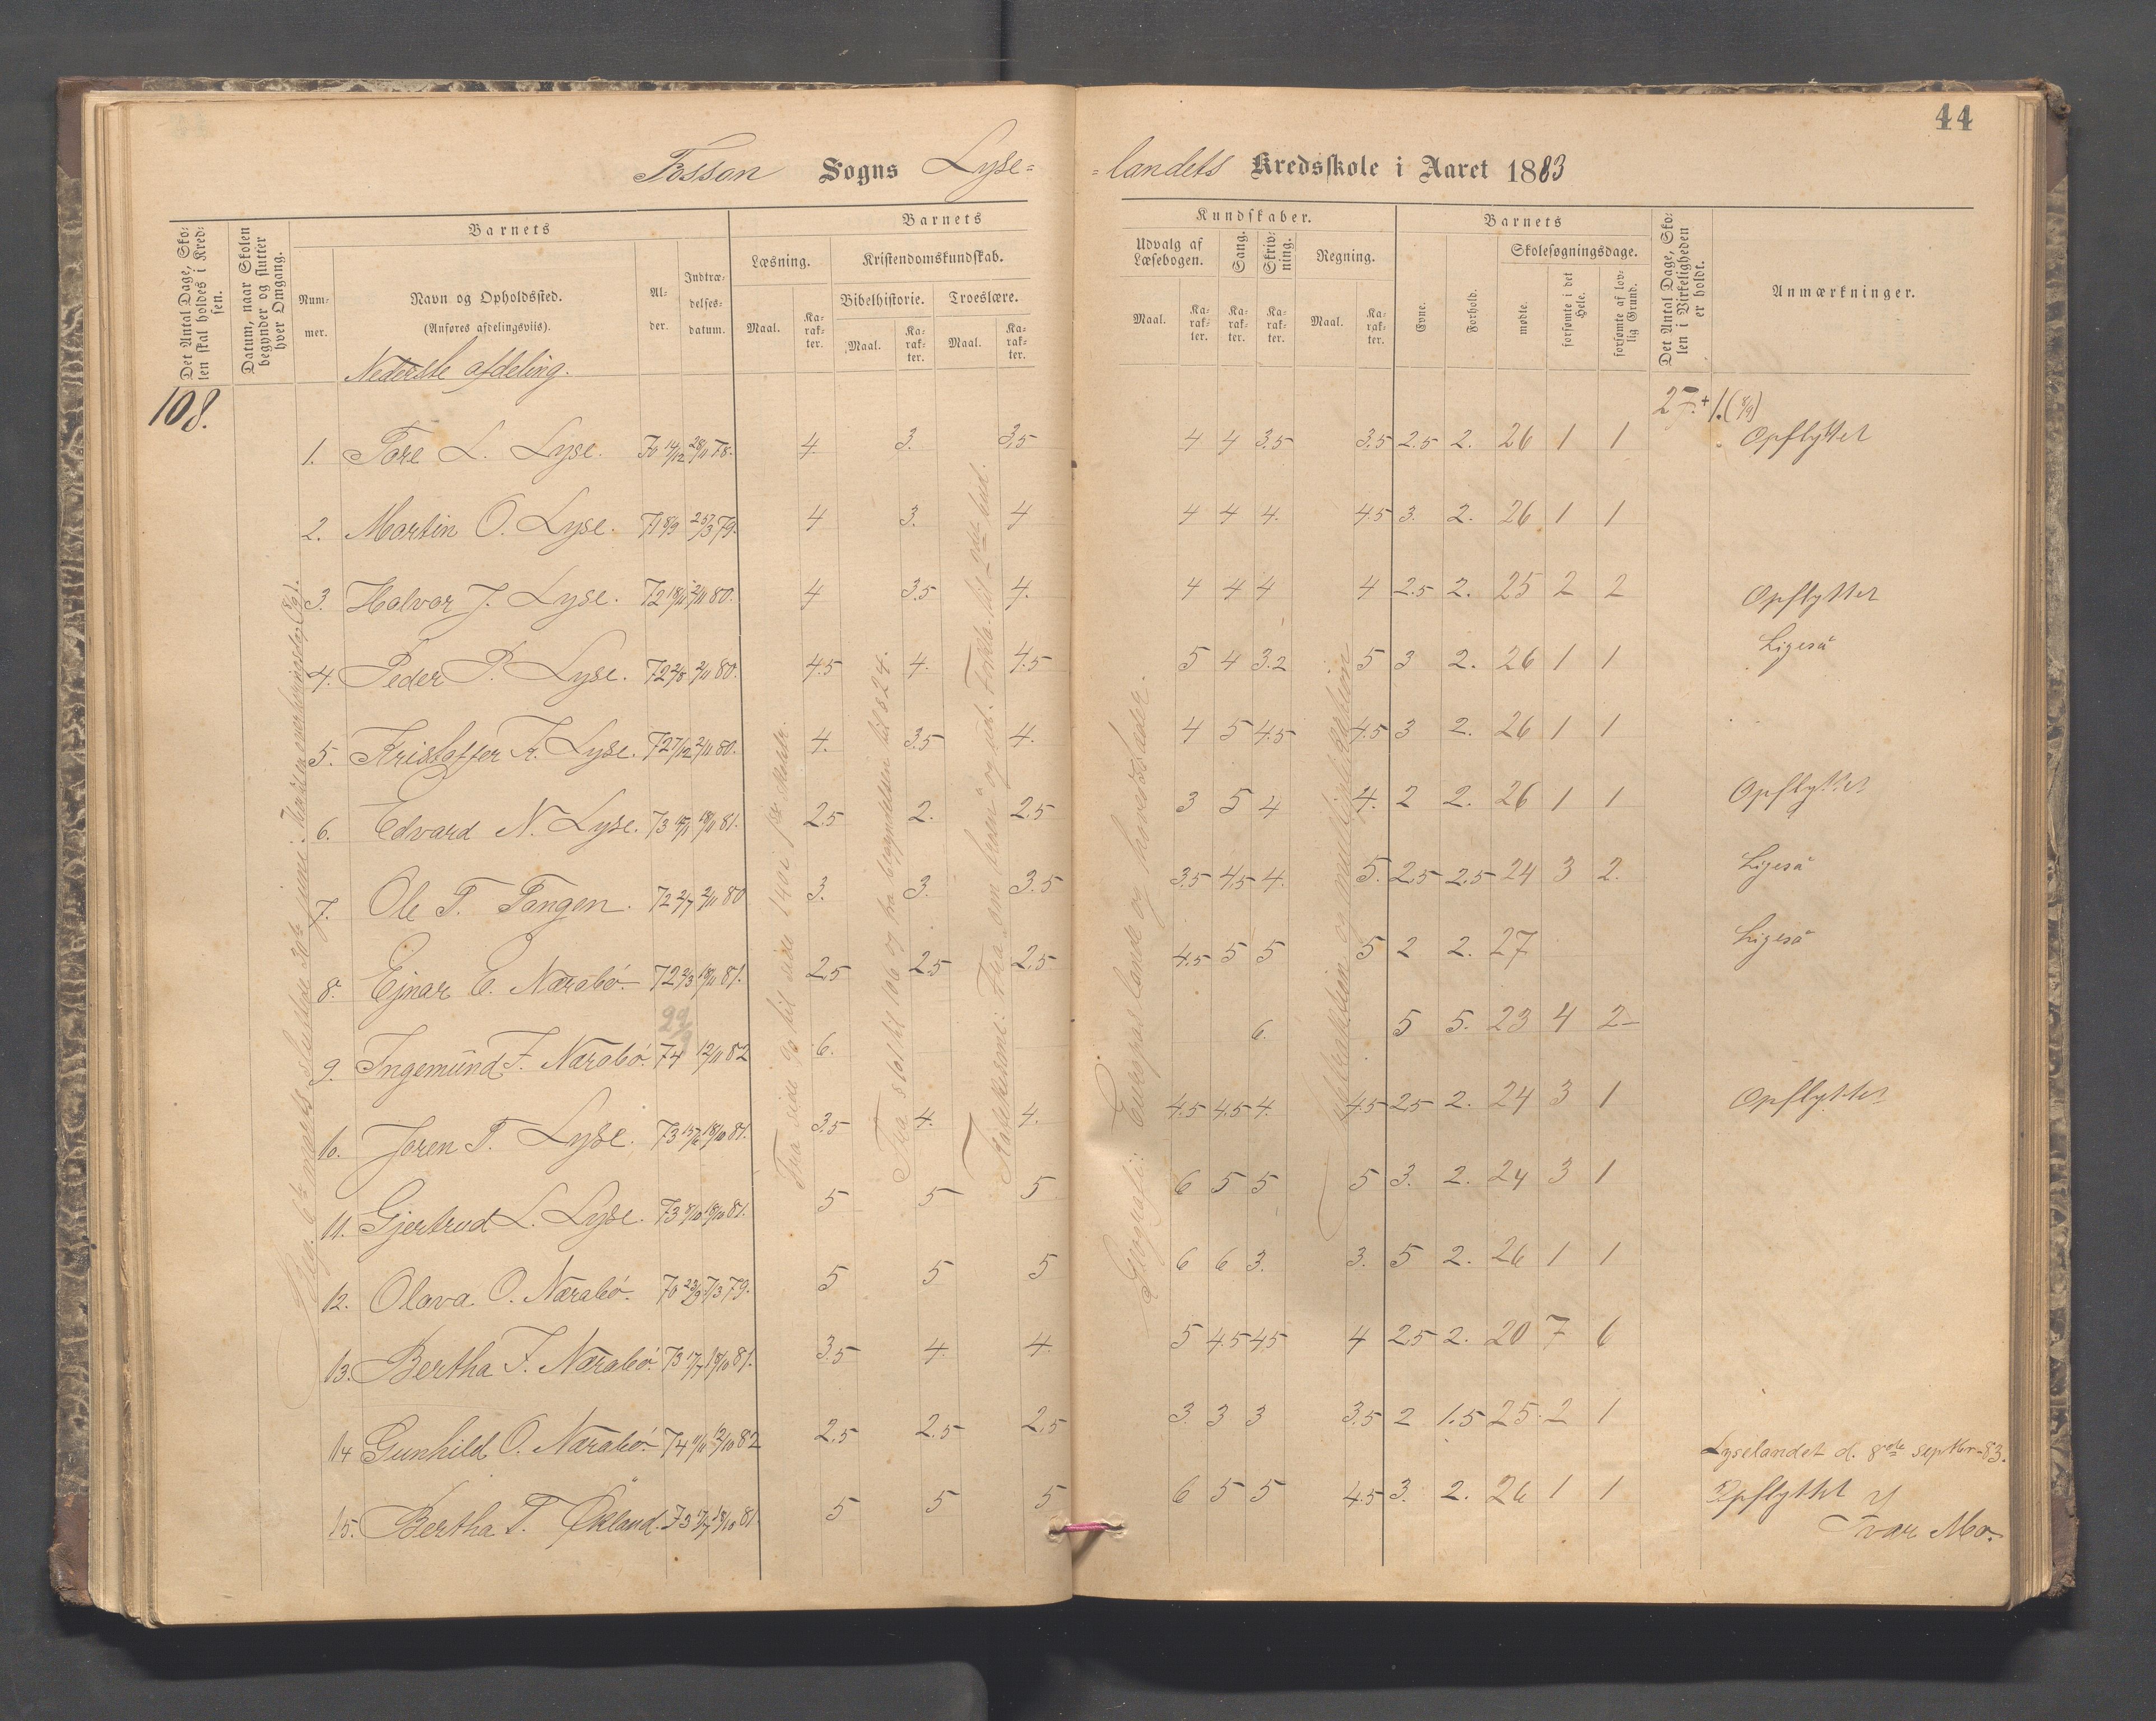 44
Fossan Sogns Lyse=
=landets Kredsskole i Aaret 1883
Det Antal Dage, Sko-
len skal holdes i Kred-
sen.
Datum, naar Skolen
begynder og slutter
hver Omgang.
Barnets
Num-
mer.
Navn og Opholdssted.
(Anføres afdelingsviis).
Al-
der.
Indtræ-
delses-
datum.
Barnets
Læsning.
Maal.
Ka-
rak-
ter.
Kristendomskundskab.
Bibelhistorie.
Maal.
Ka-
rak-
ter.
Troeslære.
Maal.
Ka-
rak-
ter.
Kundskaber.
Udvalg af
Læsebogen.
Maal.
Ka-
rak-
ter.
Sang.
Ka-
rak-
ter.
Skriv-
ning.
Ka-
rak-
ter.
Regning.
Maal.
Ka-
rak-
ter.
Barnets
Evne.
Forhold.
Skolesøgningsdage.
mødte.
forsømte i det
Hele.
forsømte af lov-
lig Grund.
Det Antal Dage, Sko-
len i Virkeligheden
er holdt.
Anmærkninger.
Nederste afdeling.
108.
27.+1.(8/9)
1. Tore L. Lyse. 70 14/12 28/11 78. 4. 3. 3,5 4 4 3.5 3.5 2.5 2. 26 1 1 Opflyttet
2. Martin O. Lyse. 71 8/9 25/3 79. 4 3. 4 4 4 4. 4.5 3. 2. 26 1 1
3. Halvor J. Lyse. 72 18/11 2/11 80. 4 3.5 4. 4 4 4 4 2.5 2. 25 2 2 Opflyttet
4. Peder P. Lyse. 72 2/8 2/11 80. 4.5 4. 4.5 5 4 3.2 5 3 2. 26 1 1 Ligeså
5. Kristoffer Tr. Lyse. 72 7/12 2/11 80. 4. 3.5 4. 4 5 4.5 4.5 3 2. 26 1 1
6. Edvard N. Lyse. 73 18/11 81. 2.5 2. 2.5 3 5 4 4. 2 2. 26 1 1 Opflyttet
7. Ole T. Tangen. 72 2/7 2/11 80 3. 3. 3.5 3.5 4.5 4. 5. 2.5 2.5 24 3 2. Ligeså
8. Ejnar E. Nærabø. 72 2/3 18/11 81. 2.5 2.5 2.5 4.5 5 5 5 2 2. 27 Ligeså
9. Ingemund F. Nærabø. 74 12/11 82 6. 6. 5 5. 23 4 2
10. Joren P. Lyse. 73 15/6 18/10 81. 3.5 4. 4. 4.5 4.5 4. 4.5 2.5 2. 24 3 1 Opflyttet
11. Gjertrud L. Lyse. 73 8/10 18/10 81. 5 5 5 6 5 5 5 3. 2. 24 3 1
12. Olava O. Nærabø. 70 23/9 7/3 79. 5 5 5 6 6 3. 3. 5 2. 26 1 1
13. Bertha F. Nærabø. 73 17/7 18/10 81. 3.5 4. 4. 5 4.5 4.5 4 2.5 2. 20 7 6
14 Gunhild O. Nærabø. 74 11/11 12/10 82 2.5 2.5 2.5 3. 3 3 3.5 2 1.5 25 2 1
15. Bertha T. Økland. 73 17/7 18/10 81 5 5 5 6 5 5 4.5 3. 2. 26 1 1 Opflyttet
Lyselandet d. 8de septbr-83.
Ivar Mo.
Fra side 90 til side 140 i 1ste skoletr.
Fra § 101 til 106 og fra begyndelsen til § 24.
Geografi: Europas lande og hovedstæder.